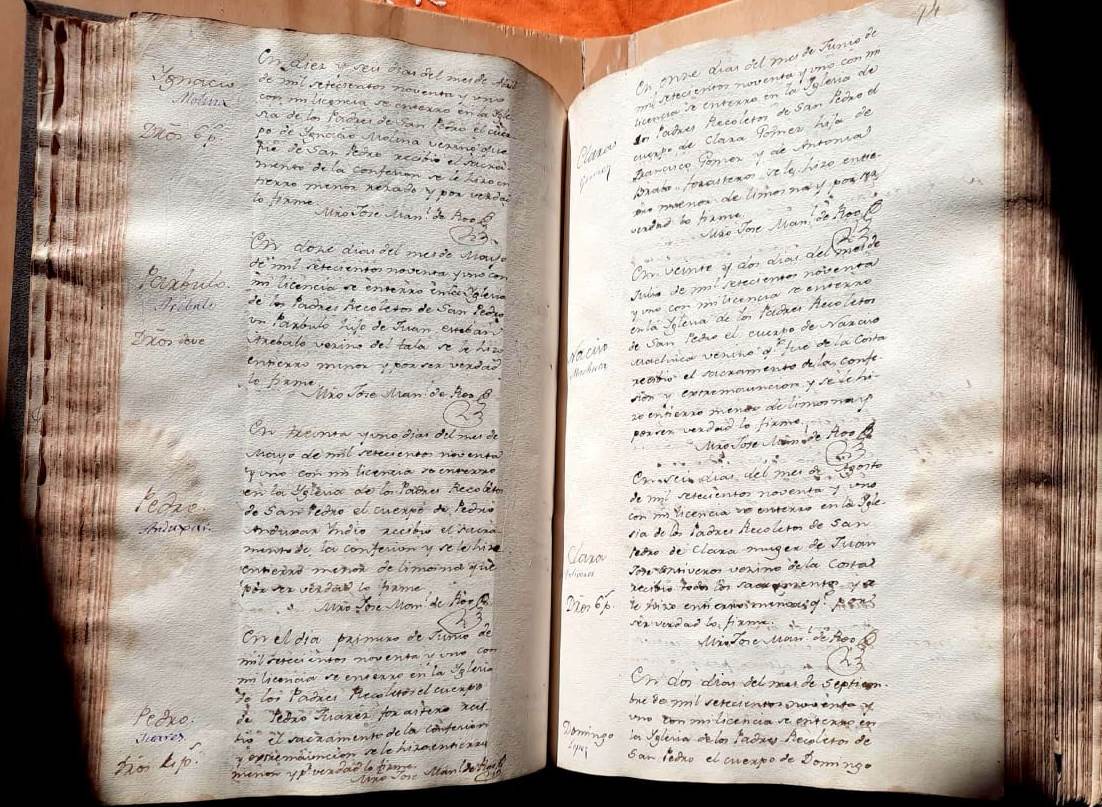 Ygnacio
Molina
En diez y seis dias del mes de Abril
de mil setecientos noventa y uno
con mi licencia se enterro en la Ygle
sia de los Padres de San Pedro el cuer
po de Ignacio Molina vecino que
fue de San Pedro recibio el sacra
mento de la confesion se le hizo en
tierro menor rezado y por verdad
lo firme
Mro Jose Man.l de Roo
Parbulo.
Arebalo
En doze dias del mes de Mayo
de mil setecientos noventa y uno con
mi licencia se enterro en la Yglesia
de los Padres Recoletos de San Pedro
un Parbulo hijo de Juan esteban
Arebalo vecino del tala se le hizo
entierro minor y por ser verdad
lo firme
Mro Jose Man.l de Roo
Pedro.
Anduxar
En treinta y uno dias del mes de
Mayo de mil setecientos noventa
y uno con mi licencia se enterro
en la Yglesia de los Padres Recoletos
de San Pedro el cuerpo de Pedro
Anduxar Yndio recibio el sacra
mento de la confesion y se le hizo
entierro menor de limosna y de
por ser verdad lo firme
Mro Jose Man.l de Roo
Pedro.
Juarez
En el dia primero de Junio de
mil setecientos noventa y uno con
mi licencia se enterro en la Yglesia
de los Padres Recoletos el cuerpo
de Pedro Juarez forastero reci
bio el sacramento de la confesion
y extremauncion se le hizo entierro
menor y p.r verdad lo firme
Mro Jose Man.l de Roo
94
Clara
Gomez
En onze dias del mes de Junio de
mil setecientos noventa y uno con mi
licencia se enterro en la Yglesia de
los Padres Recoletos de San Pedro el
cuerpo de Clara Gomez hija de
Francisco Gomez y de Antonia
Brabo forasteros se le hizo entie
rro menor de limosna y por ser
verdad lo firme
Mro Jose Man.l de Roo
En veinte y dos dias del mes de
Julio de mil setecientos noventa
y uno con mi licencia se enterro
en la Yglesia de los Padres Recoletos
de San Pedro el cuerpo de Narciso
Machuca vecino q.e fue de la Costa
recibio el sacramento de la confe
sion y extremauncion y se le hi
zo entierro menor de limosna y
por ser verdad lo firme
Mro Jose Man.l de Roo
Clara
En seis dias del mes de Agosto
de mil setecientos noventa y uno
con mi licencia se enterro en la Ygle
sia de los Padres Recoletos de San
Pedro de Clara muger de Juan
Jose Ontiveros vecino de la Costa
recibio todos los sacramentos y se
le hizo entierro menor y por
ser verdad lo firme
Mro Jose Man.l de Roo
Domingo
En dos dias del mes de Septiem-
bre de mil setecientos noventa y
uno con mi licencia se enterro en
la Yglesia de los Padres Recoletos de
San Pedro el cuerpo de Domingo